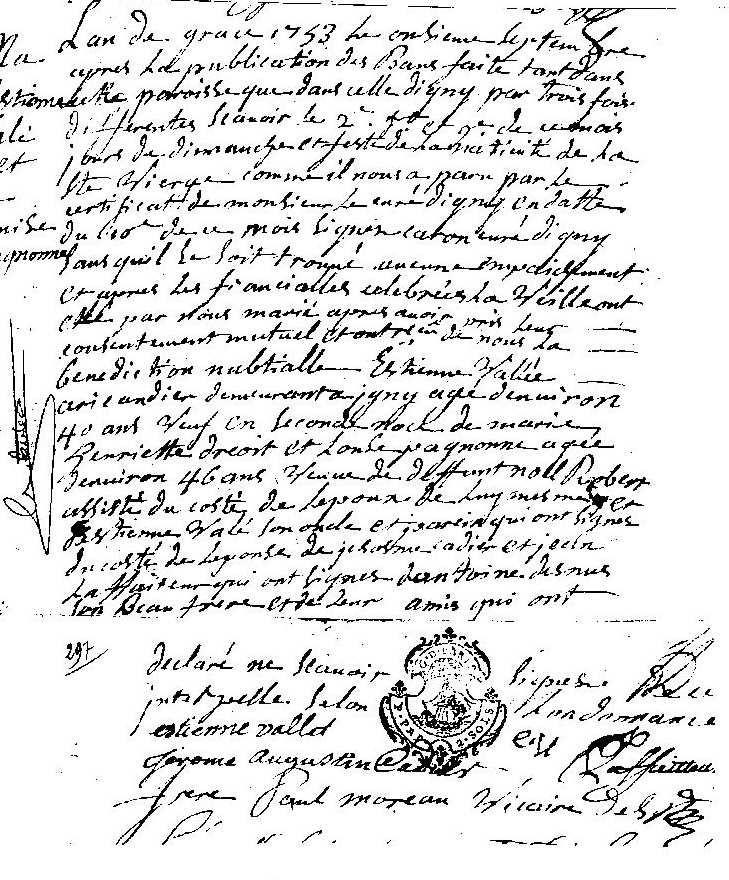 Lan de grace 1753 Le onsieme Septembre
apres La publication des Bans faite tant dans
cette paroisse que dans celle digny par trois fois
differentes Scauoir le 2e. et 9e. de ce mois
jours de dimanche et feste de La natiuité de La
Ste Vierge comme il nous a paru par Le
certificat de monsieur Le curé digny en datte
du 10e de ce mois Signer caron curé digny
Sans quil Se Soit trouué aucune empaichement
et apres Les fiancialles celebrées La Veille ont
etté par nous marié apres auoir pris Leur
consentement mutuel et ont de nous La
benediction nubtialle Estienne Vallée
demeurant a jgny agé denuiron
40 ans Veuf en Seconde noce de marie
henriette droit et Louise pagnonne agée
denuiron 46 ans Veuue de deffunt noll Robert
assisté du costé de Lepoux de Luy mesme et
destienne Valé Son oncle et qui ont Signes
du costé de Lepouse de jerosme cadier et jean
Laffuiteur qui ont Signes dantoine desnus
Son Beau frere et de Leur amis qui ont
297
declaré ne Scauoir Signer de ce
jnterpelle Selon Lordonnance
estienne vallot
Gérome Augustin Cadier
frere Paul moreau Vicaire de